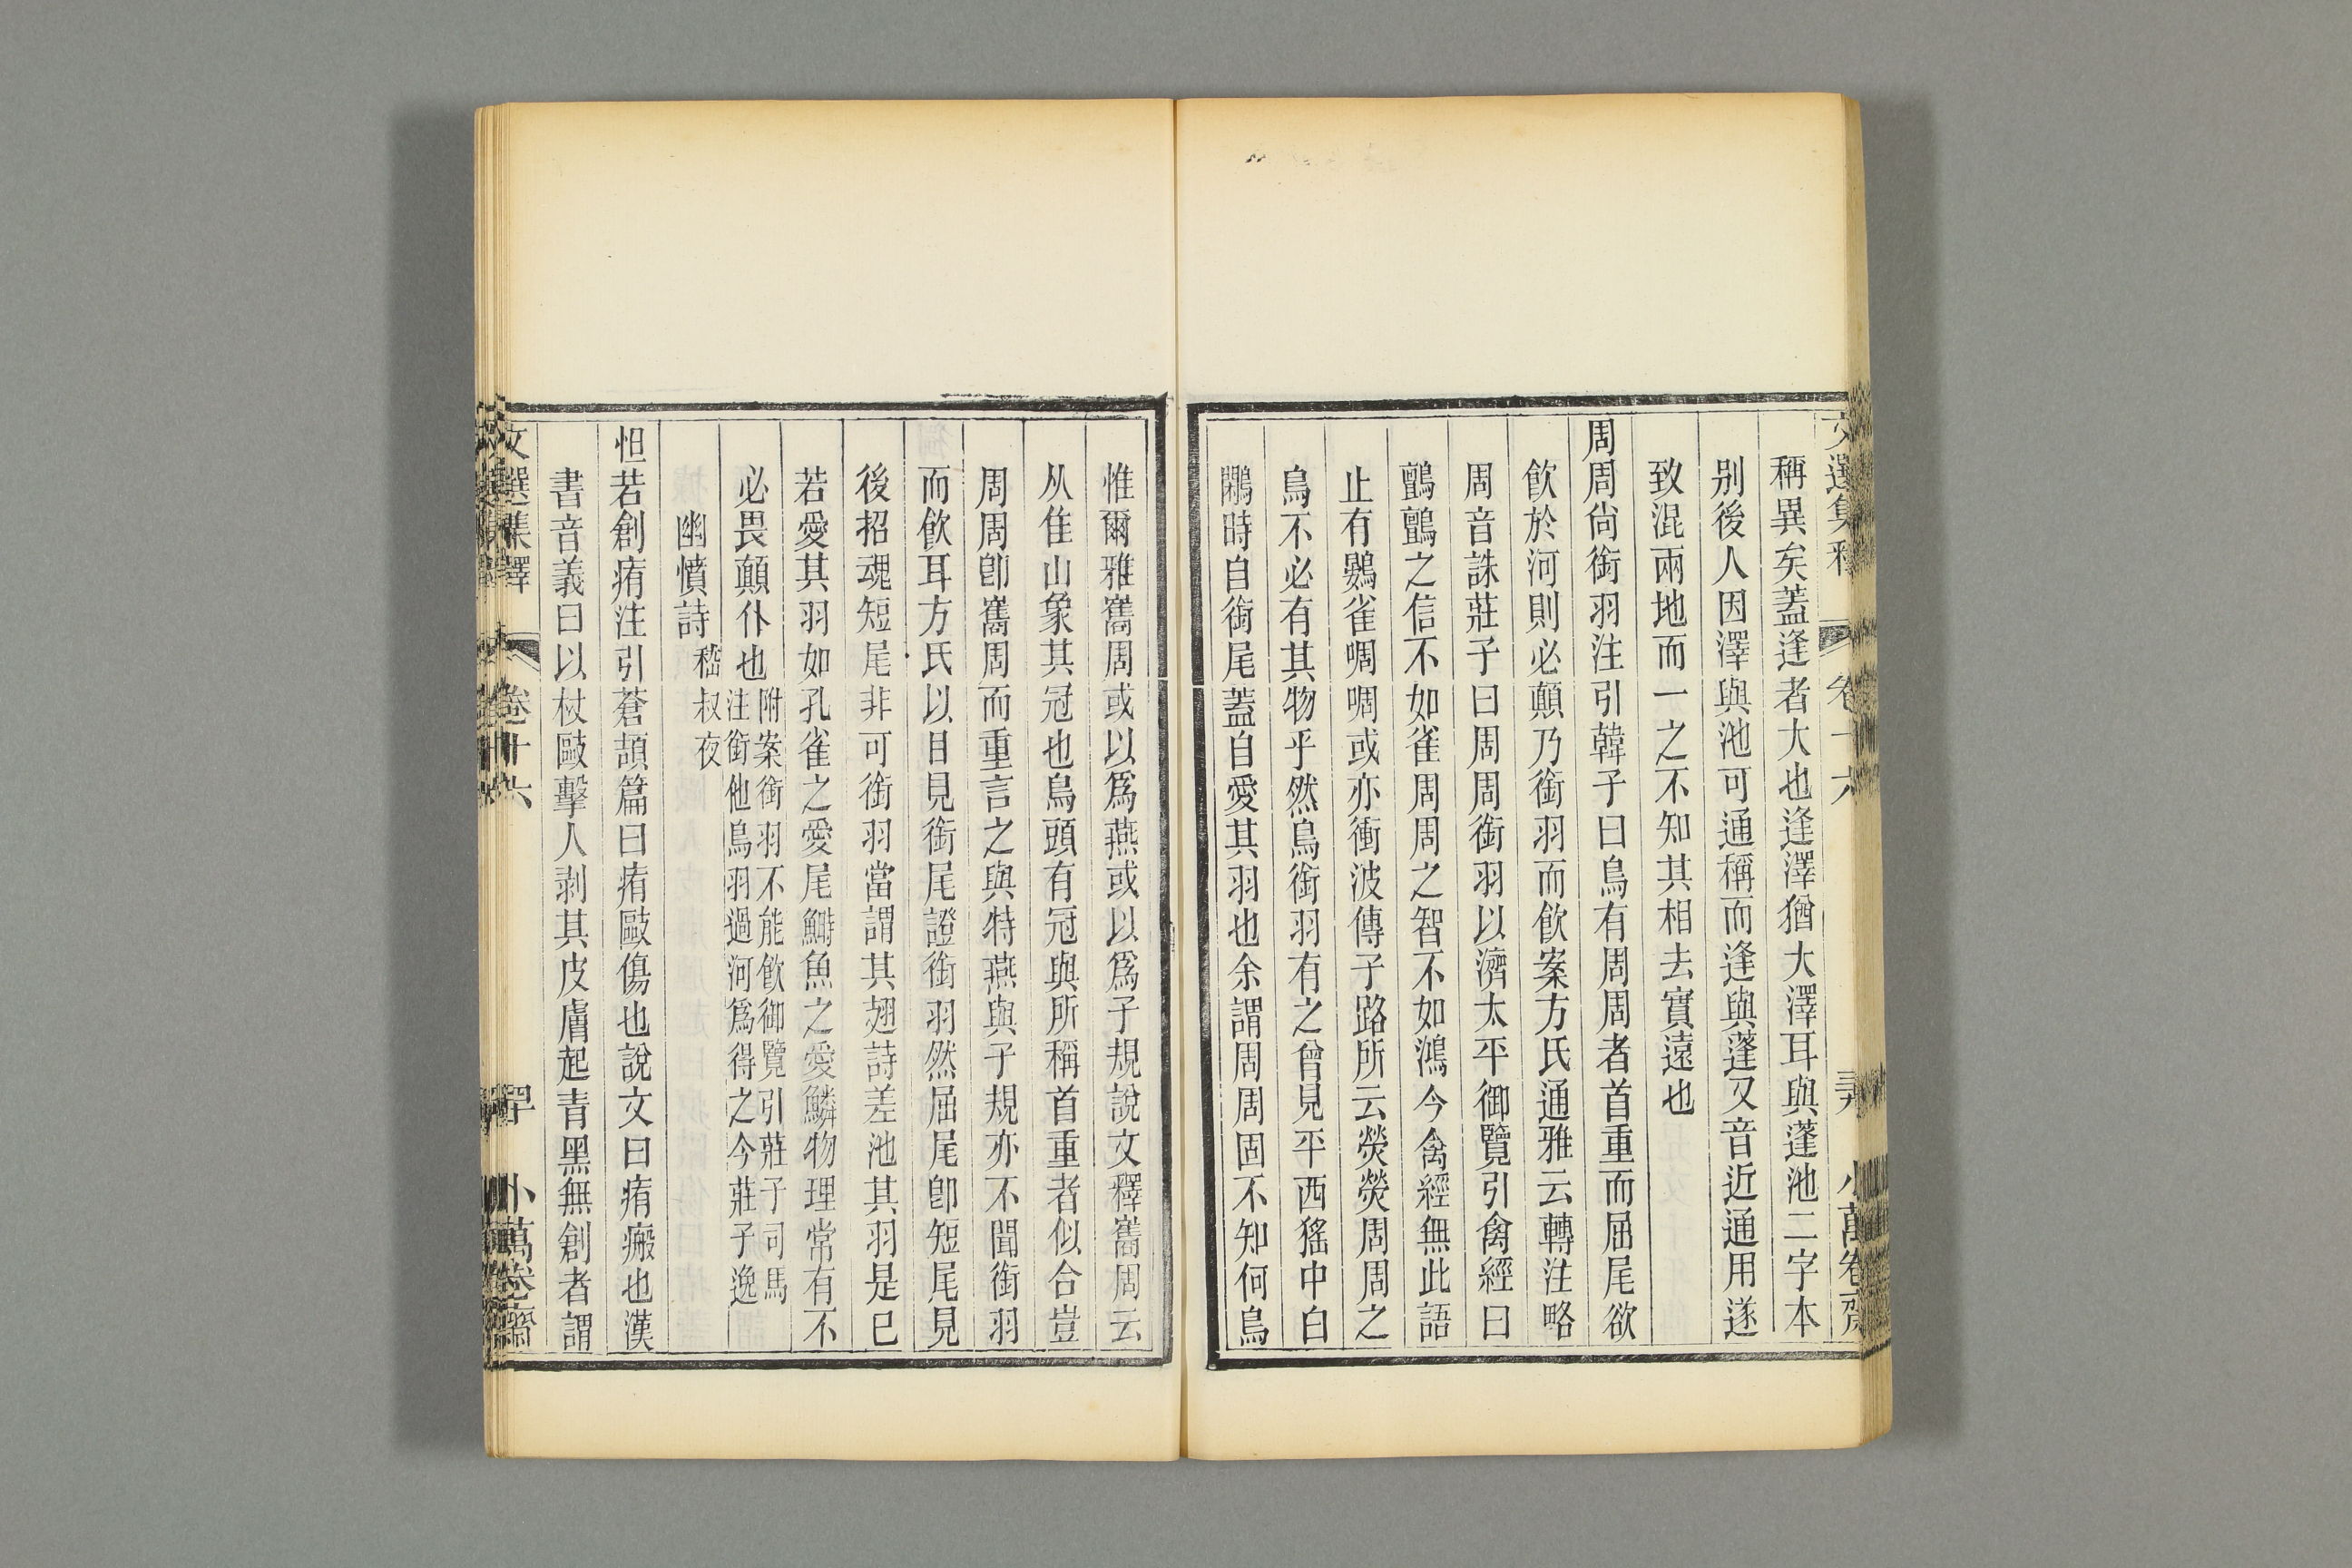 稱異矣蓋逢者大也逢澤猶大澤耳與蓬池二字本
别後人因澤與池可通稱而逢與蓬又音近通用遂
致混兩地而一之不知其相去實遠也
周周尙銜羽注引韓子曰鳥有周周者首重而屈尾欲
飮於河則必顛乃銜羽而飮案方氏通雅云轉注略
周音誅莊子曰周周銜羽以濟太平御覽引禽經曰
鸇鸇之信不如雀周周之智不如鴻今禽經無此語
止有鷃雀啁啁或亦衝波傳子路所云熒熒周周之
鳥不必有其物乎然鳥銜羽有之曾見平西猺中白
鷴時自銜尾蓋自愛其羽也余謂周周固不知何鳥
惟爾雅巂周或以爲燕或以爲子規說文釋巂周云
从隹山象其冠也鳥頭有冠與所稱首重者似合豈
周周卽巂周而重言之與特燕與子規亦不聞銜羽
而飮耳方氏以目見銜尾證銜羽然屈尾卽短尾見
後招魂短尾非可銜羽當謂其翅詩差池其羽是已
若愛其羽如孔雀之愛尾鰣魚之愛鱗物理常有不
必畏顛仆也
附案銜羽不能飮御覽引莊子司馬
注銜他鳥羽過河爲得之今莊子逸
幽憤詩 嵇叔夜
怛若創痏注引蒼頡篇曰痏毆傷也說文曰痏瘢也漢
書音義曰以杖毆擊人剥其皮膚起青黑無創者謂
文選集釋 卷十六 小萬卷齋